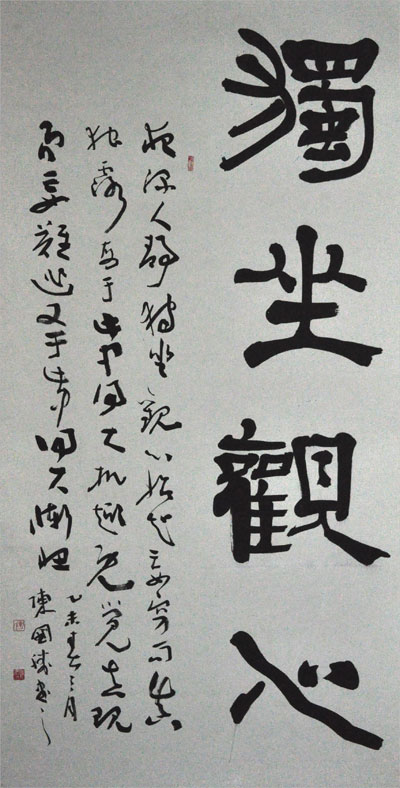 獨坐觀心
夜深人靜獨坐觀心始知妄窮而真
獨露每于此中得大机趣既覺真現
而妄難逃又于此中得大慚忸
乙未年
陳國